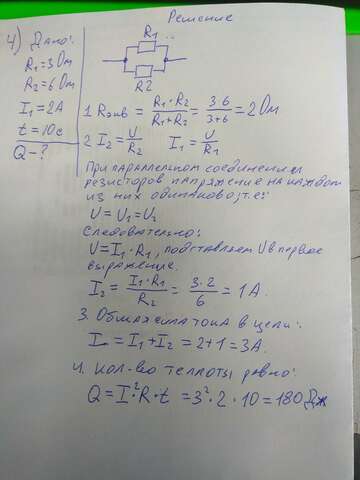 Решение
4) Дано:
R₁=3 Ом
R₂=6 Ом
I₁=2А
t=10с
Q-?
R₁ ...
R2
1 Rэкв = R₁·R₂/R₁+R₂ = 3·6/3+6 = 2 Ом
2 I₂ = U/R₂ I₁ = U/R₁
При параллельном соединении
резисторов напряжение на каждом
из них одинаково, т.е:
U=U₁=U₂
Следовательно:
U=I₁·R₁, подставляем U в первое
выражение.
I₂ = I₁·R₁/R₂ = 3·2/6 = 1 А.
3. Общая сила тока в цепи:
I = I₁+I₂ = 2+1 = 3А.
4. Кол-во теплоты равно:
Q = I²·R·t = 3²·2·10 = 180 Дж